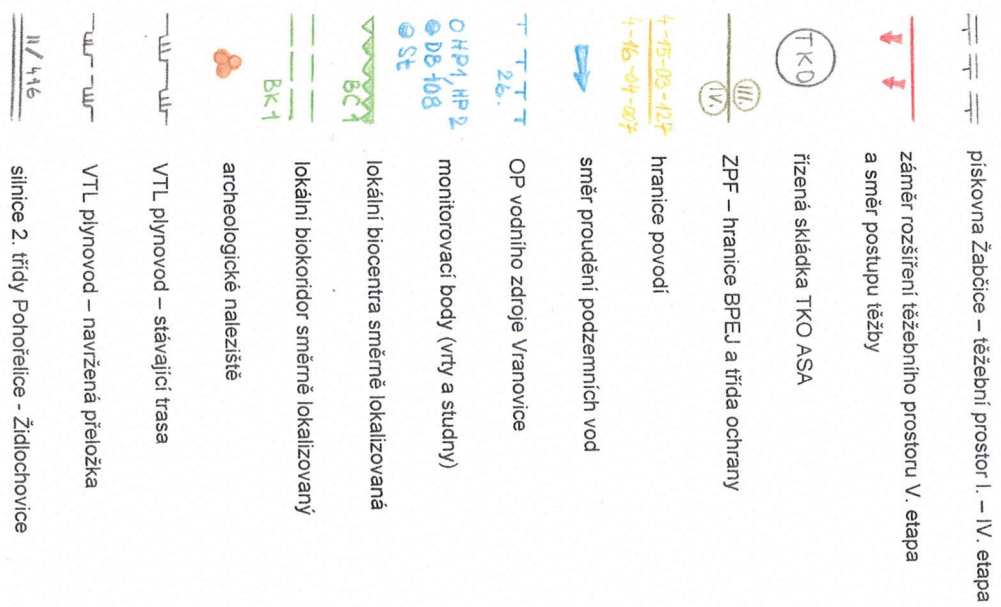 pískovna Žabčice – těžební prostor I. – IV. etapa
záměr rozšíření těžebního prostoru V. etapa
a směr postupu těžby
TKO
řízená skládka TKO ASA
III.
IV.
ZPF – hranice BPEJ a třída ochrany
4-15-03-127
4-16-04-007
hranice povodí
směr proudění podzemních vod
2b.
OP vodního zdroje Vranovice
HP1, HP2
DB-108
St
monitorovací body (vrty a studny)
BC1
lokální biocentra směrně lokalizovaná
BK1
lokální biokoridor směrně lokalizovaný
archeologické naleziště
VTL plynovod – stávající trasa
VTL plynovod – navržená přeložka
II/416
silnice 2. třídy Pohořelice - Židlochovice